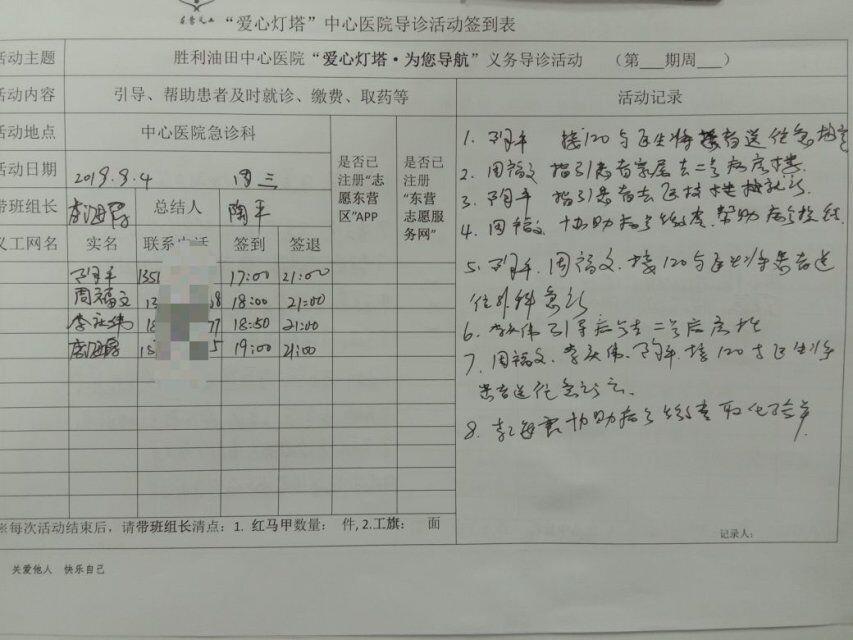 “爱心灯塔”中心医院导诊活动签到表
活动主题 胜利油田中心医院“爱心灯塔·为您导航”义务导诊活动 （第___期周___）
活动内容 引导、帮助患者及时就诊、缴费、取药等 活动记录
活动地点 中心医院急诊科
是否已注册“志愿东营区”APP
是否已注册“东营志愿服务网”
活动日期 2019.9.4 周三
带班组长 总结人 陶平
义工网名 实名 联系电话 签到 签退
1351 17:00 21:00
周福文 18:00 21:00
18:50 21:00
19:00 21:00
1. 接120与医生将患者送往急诊室
2. 周福文 指引患者家属去二号病房楼
3. 指引患者去医技楼
4. 周福文 协助病号缴费，帮助病号
5. 周福文，接120与医生将患者送
往外科急诊
6. 引导病号去二号病房楼
7. 周福文、 接120与医生将
患者送往急诊室．
8. 协助病号缴费取化验单
※每次活动结束后，请带班组长清点：1. 红马甲数量： 件, 2.工旗： 面
记录人：
关爱他人 快乐自己